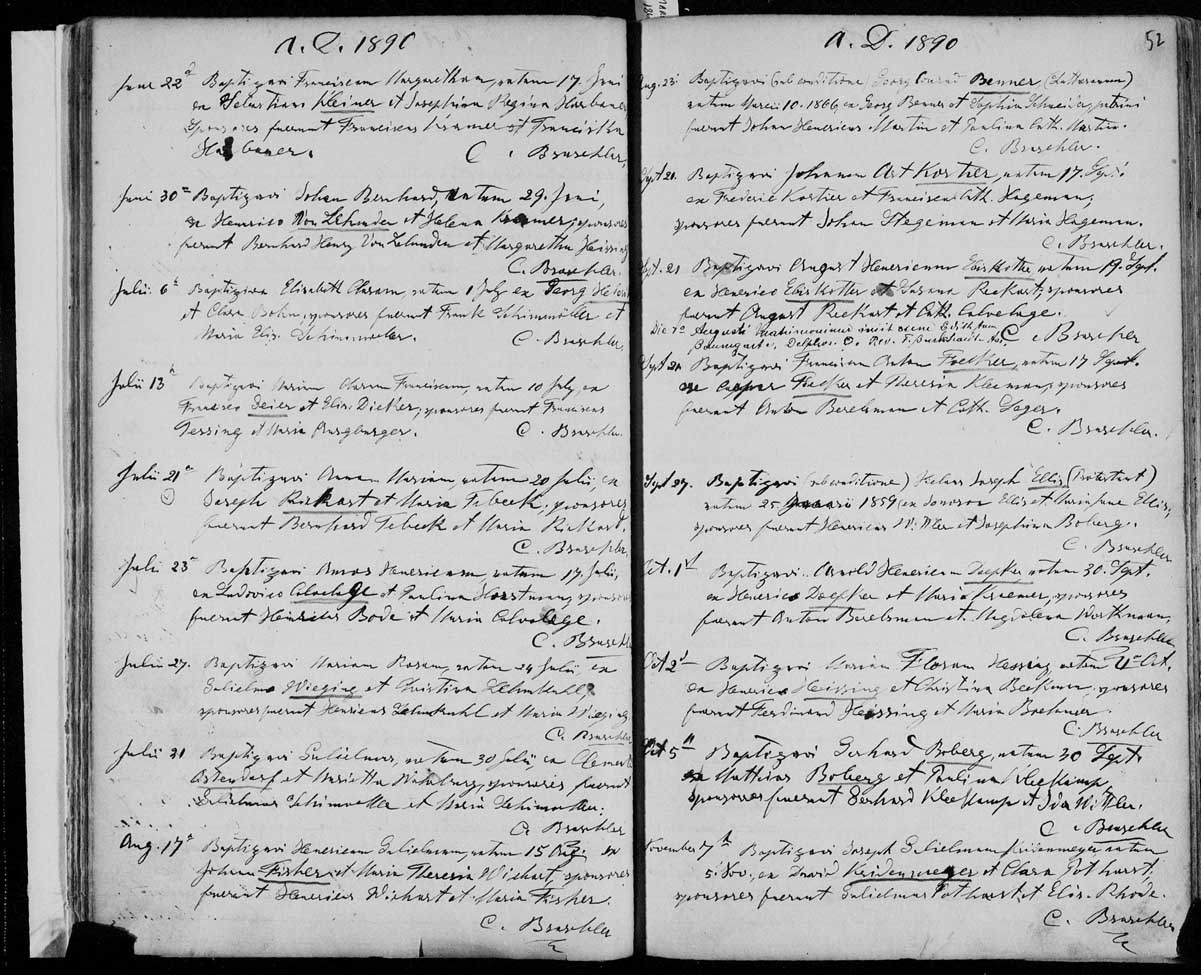 A. D. 1890
June 22ᵃ Baptizavi Franciscam Margaretham, natam 17. Juni
ex Sebastiano Kleiner et Josephina Regina
Sponsores fuerunt Franciscus Kramer et Francisca
C. Braschler.
Juni 30ᵃ Baptizavi Johan Bernhard, natum 29. Juni,
ex Henrico Von Lehnden et Helena Kramer, sponsores
fuerunt Bernhard Henry Von Lehnden et Margaretha Heissing
C. Braschler.
Julii 6ᵃ Baptizavi Elisabeth Claram, natam 1 July ex Georg
et Clara Bohn, sponsores fuerunt Frank Schinmöller et
Maria Elis. Schinmoeller. C. Braschler.
Julii 13ᵃ Baptizavi Mariam Claram Franciscam, natam 10 July, ex
Francisco Deier et Elis. Dicker, sponsores fuerunt Franciscus
Tessing et Maria Burgburger. C. Braschler.
Julii 21ᵃ Baptizavi Annam Mariam, natam 20 Julii, ex
Joseph Rickart et Maria Tebeck, sponsores
fuerunt Bernhard Tebeck et Maria Rickart.
C. Braschler
Julii 23ᵃ Baptizavi Henricum, natum 17. Julii,
ex Ludovico Calvelage et Paulina Horstman, sponsores
fuerunt Heinrich Bode et Maria Calvelage.
C. Braschler
Julii 27. Baptizavi Mariam Rosam, natam 24 Julii, ex
Gulielmo Wieging et Christina Lehmkuhl,
sponsores fuerunt Henricus Lehmkuhl et Maria Wieging.
C. Braschler
Julii 31 Baptizavi Gulielmum, natum 30 Julii ex Clement
Ostendorf et Marietta sponsores fuerunt
Gulielmus Schinmoeller et Maria Schimoeller.
C. Braschler
Aug. 17ᵃ Baptizavi Henricum Gulielmum, natum 15 Aug. ex
Johann Fisher et Maria Theresia Wichart, sponsores
fuerunt Henricus Wichart et Maria Fisher.
C. Braschler
A. D. 1890
52
Aug. 23 Baptizavi (sub conditione) Georg Conrad Benner (Lutheranum)
natum Marcii 10. 1866, ex Georg Benner et Sophia Schneider, patrini
fuerunt Johan Henricus Martin et Paulina Cath. Martin.
C. Braschler.
Sept 21. Baptizavi Johannem Ast Kortier, natum 17. Sept.
ex Frederic Kortier et Francisca Cath. Hageman,
sponsores fuerunt Johan Stegeman et Maria Hageman.
C. Braschler.
Sept. 21 Baptizavi August Henericum Elirkotte, natum 19. Sept.
ex Henerico Elirkotter et Susana Rickart, sponsores
fuerunt August Rickart et Cath. Calvelage.
Die 7ᵃ Augusti Matrimonium inivit cum Edith
Baumgart, Delphos. O. Rev. F. C. Braschler
Sept 21. Baptizavi Francisum Anton Foecker, natum 17 Sept.
ex Casper Foecker et Theresia Kleeman, sponsores
fuerunt Anton Berelsman et Cath. Seger.
C. Braschler.
Sept 27. Baptizavi (sub conditione) Joseph Ellis (Protestant)
natum 25 1859, ex Ellis et Maria Jane Ellis,
sponsores fuerunt Henericus Wittler et Josephina Boberg.
C. Braschler
Oct. 1ˢᵗ Baptizavi Arnold Henericum Doepker natum 30. Sept.
ex Henerico Doepker et Maria Kraemer, sponsores
fuerunt Anton Berelsman et Magdalena Wortkmann.
C. Braschler
Oct 2ᵈ Baptizavi Mariam Floram Hessing natam Oct.
ex Henerico Heissing et Christina Beckman, sponsores
fuerunt Ferdinand Heissing et Maria Boehmer.
C. Braschler
Oct 5 Baptizavi Gerhard Boberg, natum 30 Sept.
ex Mathias Boberg et Paulina Kleekamp,
sponsores fuerunt Gerhard Kleekamp et Ida Wittler.
C. Braschler
November 7ᵗʰ Baptizavi Joseph Gulielmum Kridenmeyer natum
5. Nov., ex David Kridenmeyer et Clara Gothurst,
sponsores fuerunt Gulielmus Pothurst et Elis. Rhode.
C. Braschler